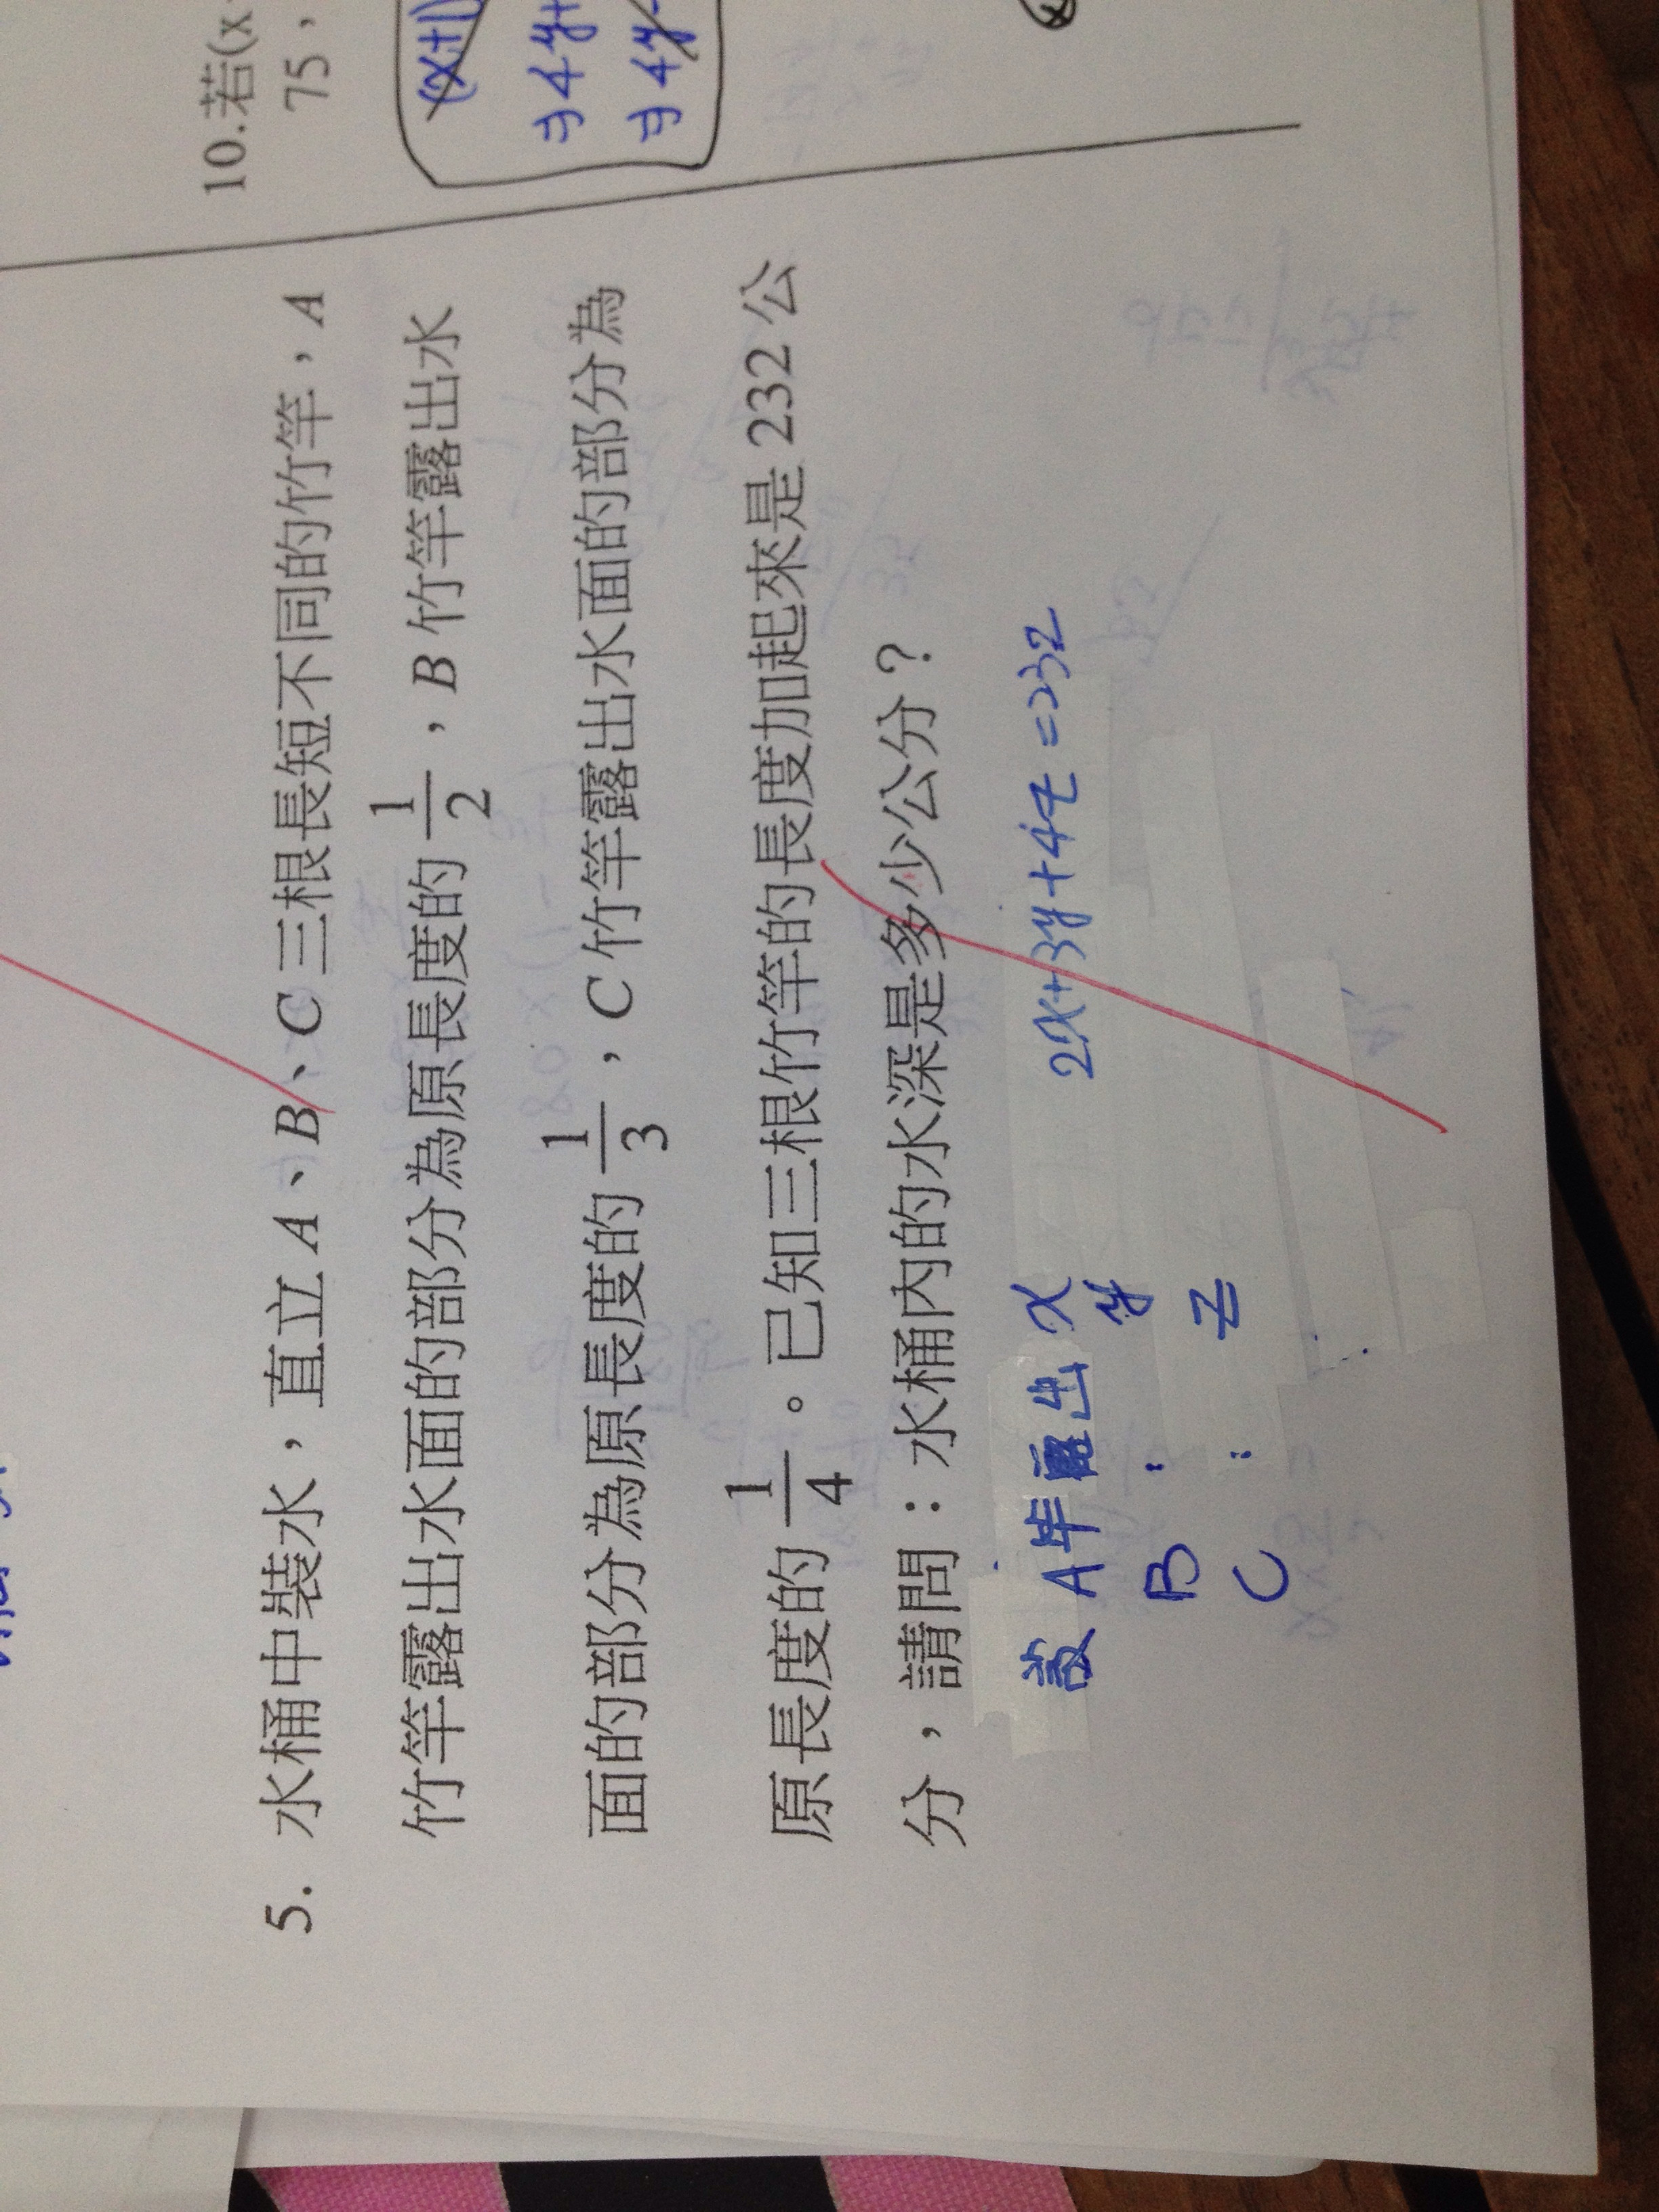 5. 水桶中裝水，直立 A、B、C 三根長短不同的竹竿，A
竹竿露出水面的部分為原長度的 1/2，B 竹竿露出水
面的部分為原長度的 1/3，C 竹竿露出水面的部分為
原長度的 1/4。已知三根竹竿的長度加起來是 232 公
分，請問：水桶內的水深是多少公分？
設 A竿露出 x
2x+3y+4z=232
B : y
C : z
10.若(x
75，
(x+1)
⇒4y+
⇒4y-